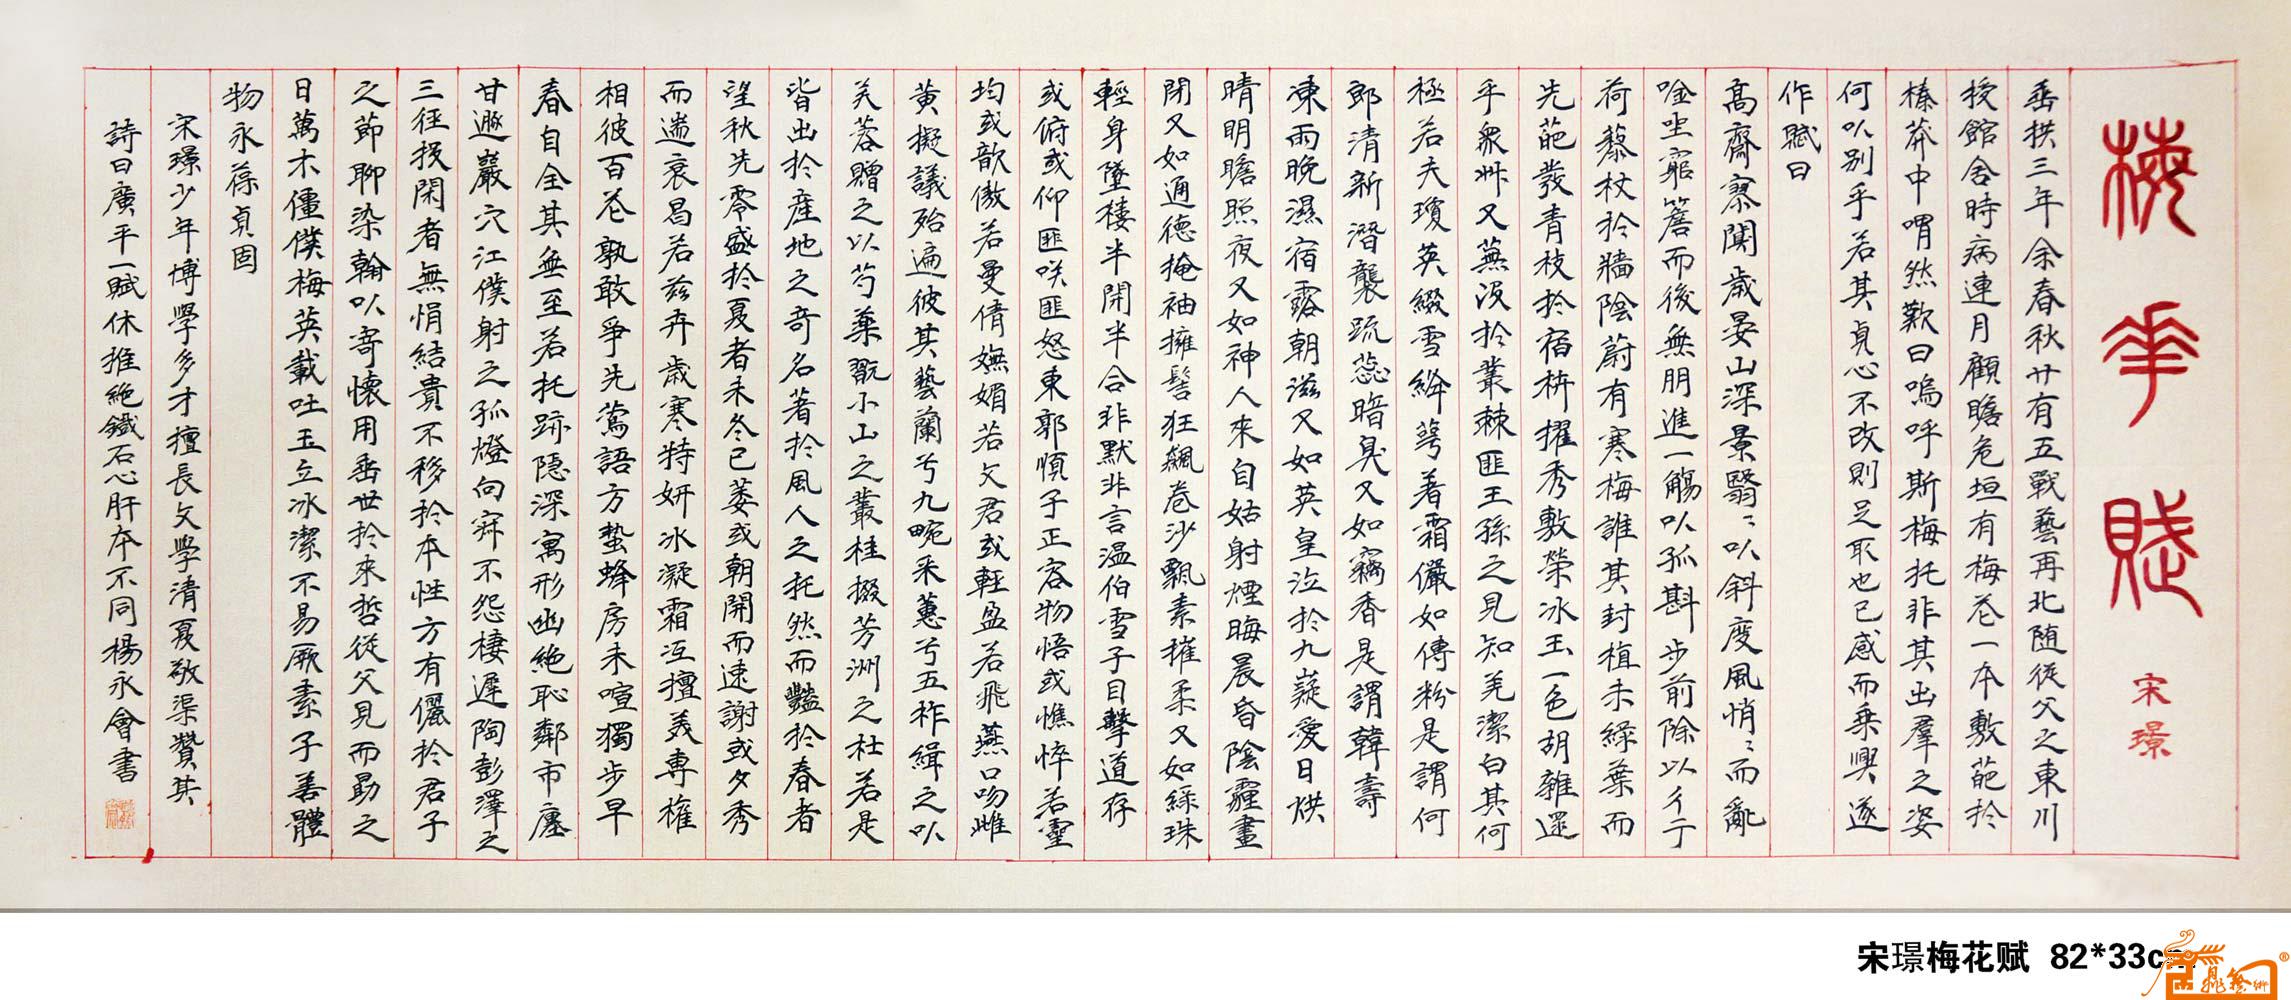 梅華賦
宋璟
垂拱三年余春秋廿有五戰藝再北随從父之東川
授館舍時病連月顧瞻危垣有梅花一本敷葩扵
榛莽中喟然歎曰嗚呼斯梅托非其出羣之姿
何以别乎若其貞心不改則足取也已感而乗興遂
作賦曰
高齋寥闃歳晏山深景翳〻以斜度風悄〻而亂
唫坐窮簷而後無朋進一觴以孤斟步前除以彳亍
荷藜杖扵牆陰蔚有寒梅誰其封植未緑葉而
先葩發青枝扵宿枿擢秀敷榮冰玉一色胡雜遝
乎衆艸又蕪没扵叢棘匪王孫之見知羌潔白其何
極若夫瓊英綴雪絳萼着霜儼如傅粉是謂何
郎清新潛襲疏蕊暗臭又如竊香是謂韓壽
凍雨晩濕宿露朝滋又如英皇泣扵九嶷愛日烘
晴明瞻照夜又如神人來自姑射煙晦晨昏陰霾晝
閉又如通德掩袖擁髻狂飆卷沙飄素摧柔又如緑珠
輕身墜樓半開半合非默非言温伯雪子目擊道存
或俯或仰匪咲匪怒東郭順子正容物悟或憔悴若靈
均或歆傲若曼倩嫵媚若文君或輕盈若飛燕口吻雌
黄擬議殆遍彼其藝蘭兮九畹采蕙兮五柞緝之以
芙蓉贈之以芍藥翫小山之叢桂掇芳洲之杜若是
皆出扵産地之奇名著扵風人之托然而豔扵春者
望秋先零盛扵夏者未冬已萎或朝開而速謝或夕秀
而遄衰曷若兹卉歳寒特妍冰凝霜冱擅美専権
相彼百花孰敢爭先鶯語方蟄蜂房未喧獨步早
春自全其無至若托跡隱深寓形幽絶恥鄰市廛
甘遯巖穴江僕射之孤燈向寂不怨棲遲陶彭澤之
三徑投閑者無悁結貴不移扵本性方有儷扵君子
之節聊染翰以寄懷用垂世扵來哲從父見而勗之
曰萬木僵僕梅英載吐玉立冰潔不易厥素子善體
物永葆貞固
宋璟少年博學多才擅長文學清夏敬渠贊其
詩曰廣平一賦休推絶鐵石心肝本不同楊永會書
宋璟梅花赋 82*33cm